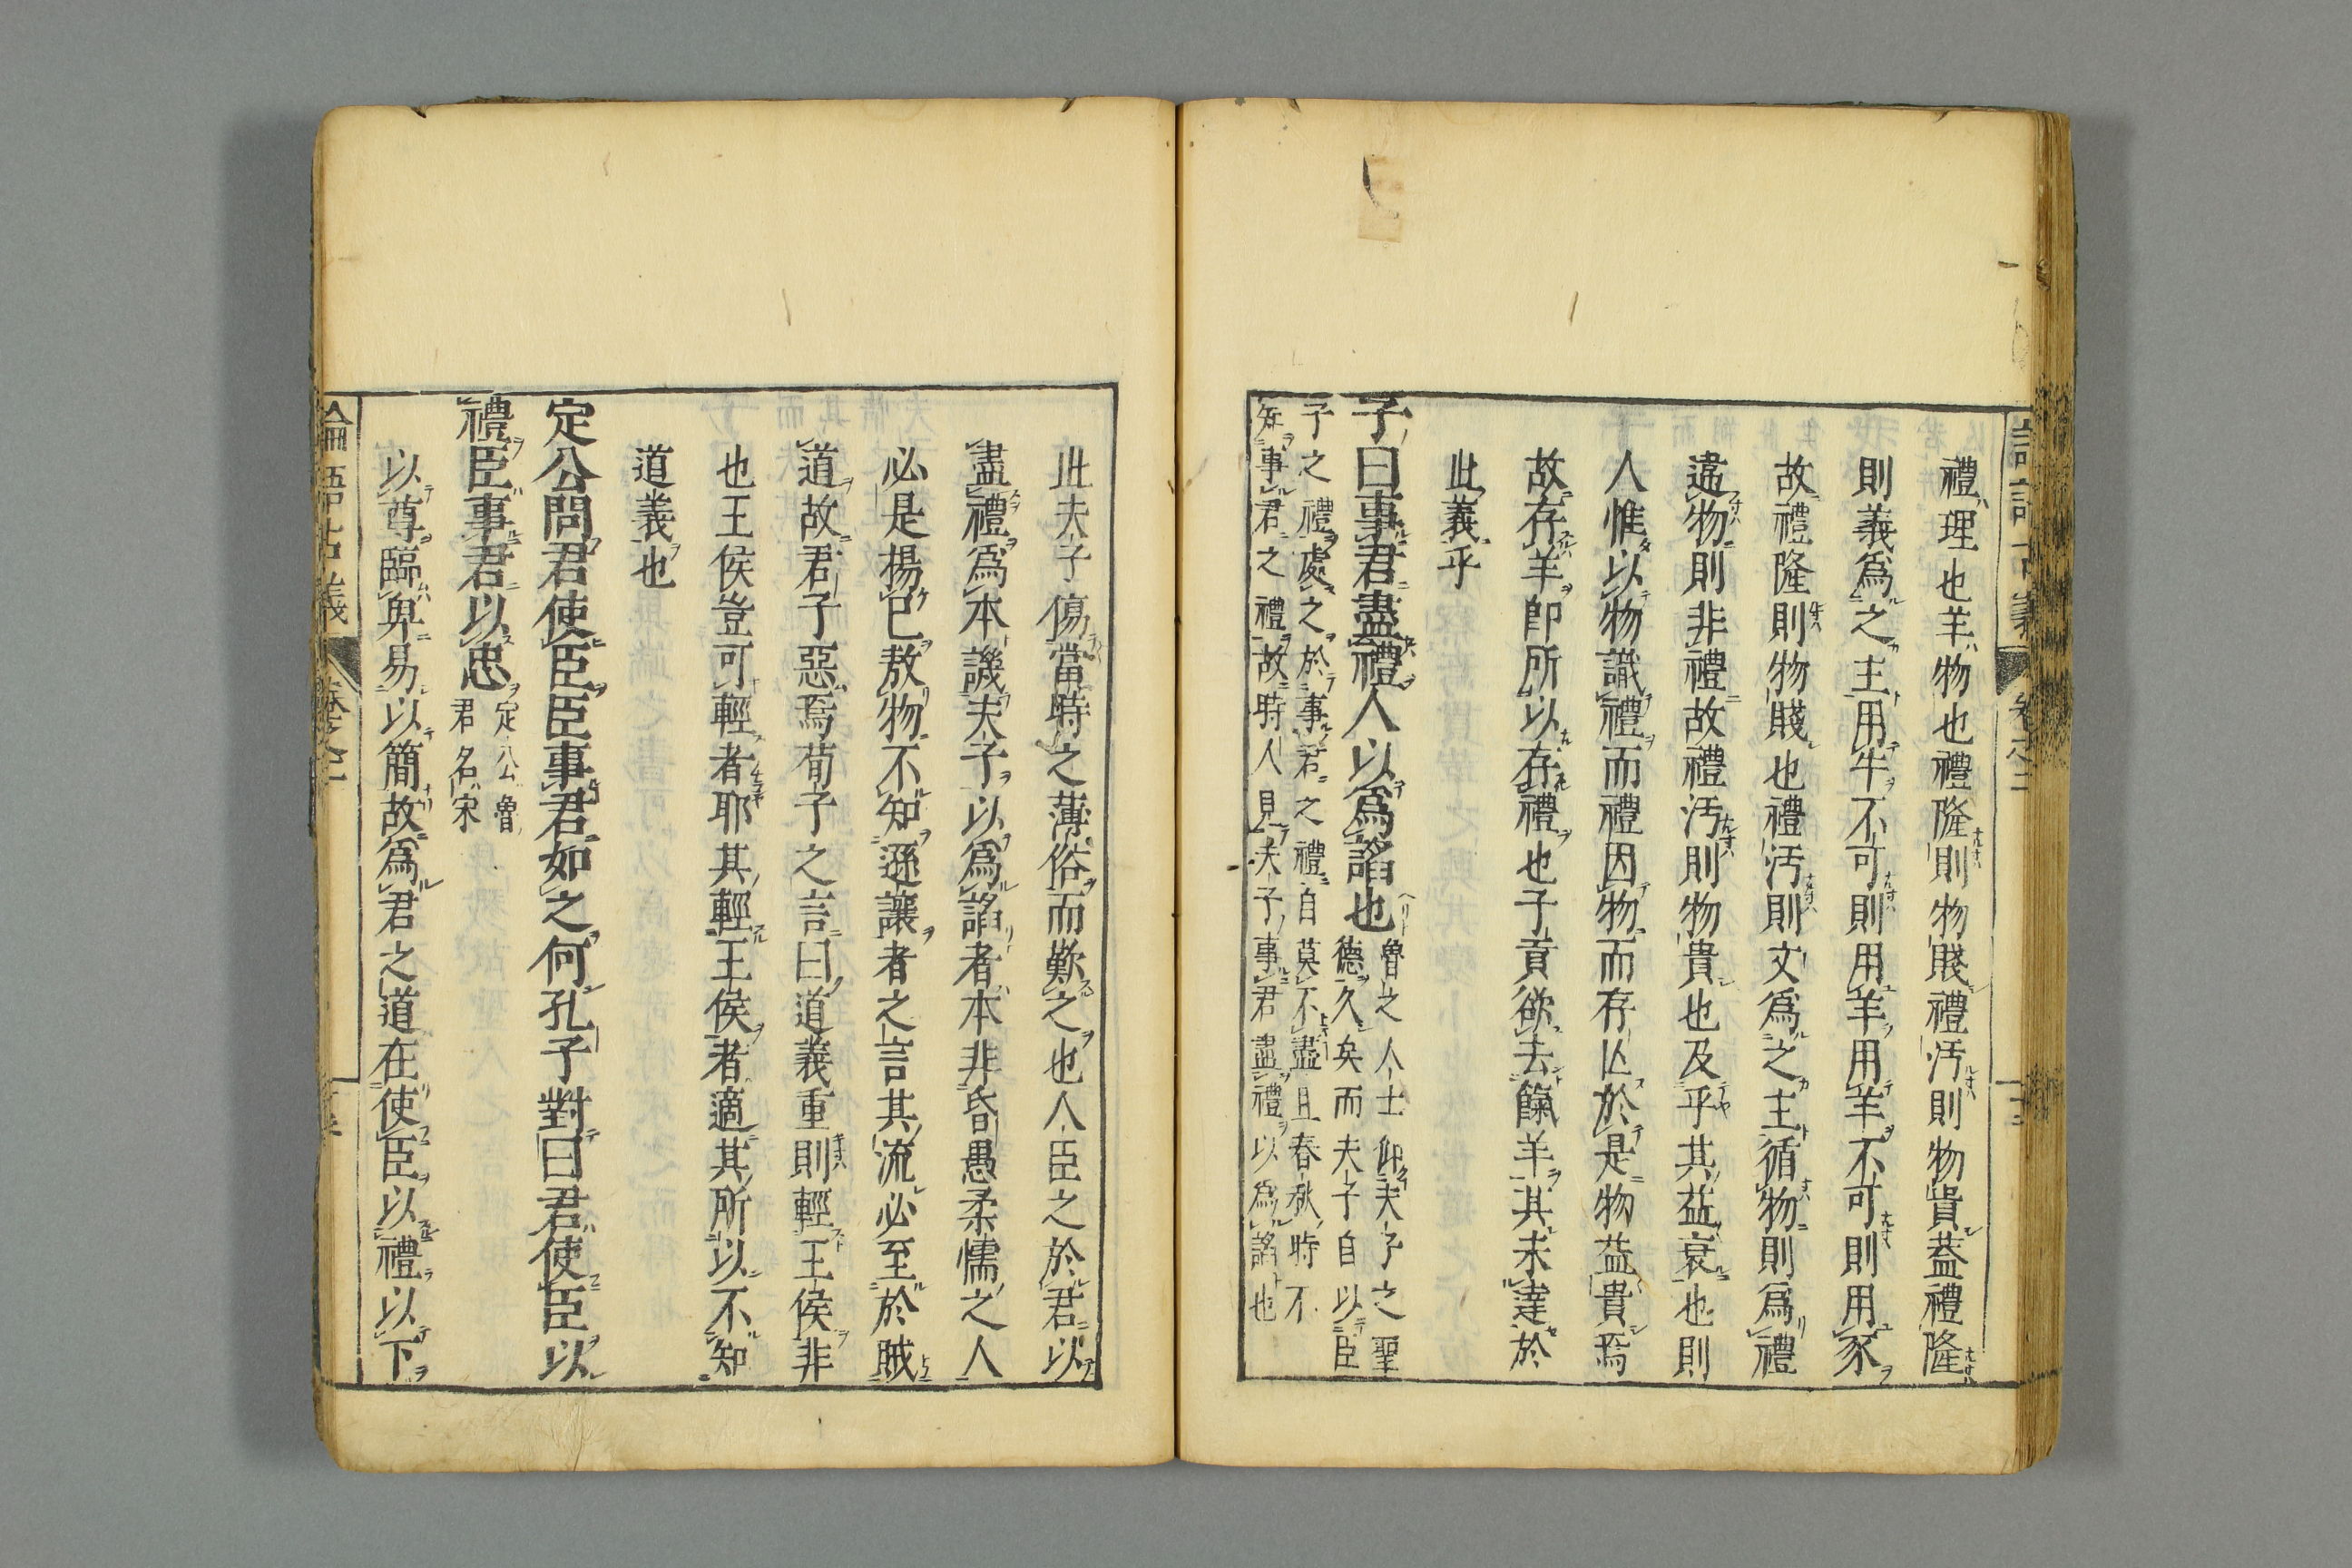 禮理也羊物也禮隆則物賤禮汚則物貴蓋禮隆
則義爲之主用牛不可則用羊用羊不可則用豕
故禮隆則物賤也禮汚則文爲之主循物則爲禮
違物則非禮故禮汚則物貴也及乎其益衰也則
人惟以物識禮而禮因物而存亾於是物益貴焉
故存羊卽所以存禮也子貢欲去餼羊其未達於
此義乎
子曰事君盡禮人以爲諂也
魯之人士仰夫子之聖
德久矣而夫子自以臣
子之禮處之於事君之禮自莫不盡且春秋時不
知事君之禮故時人見夫子事君盡禮以爲諂也
此夫子傷當時之薄俗而歎之也人臣之於君以
盡禮爲本譏夫子以爲諂者本非昏愚柔懦之人
必是揚己敖物不知遜讓者之言其流必至於賊
道故君子惡焉荀子之言曰道義重則輕王侯非
也王侯豈可輕者耶其輕王侯者適其所以不知
道義也
定公問君使臣臣事君如之何孔子對曰君使臣以
禮臣事君以忠
定公魯
君名宋
以尊臨卑易以簡故爲君之道在使臣以禮以下
論語古義 卷之二